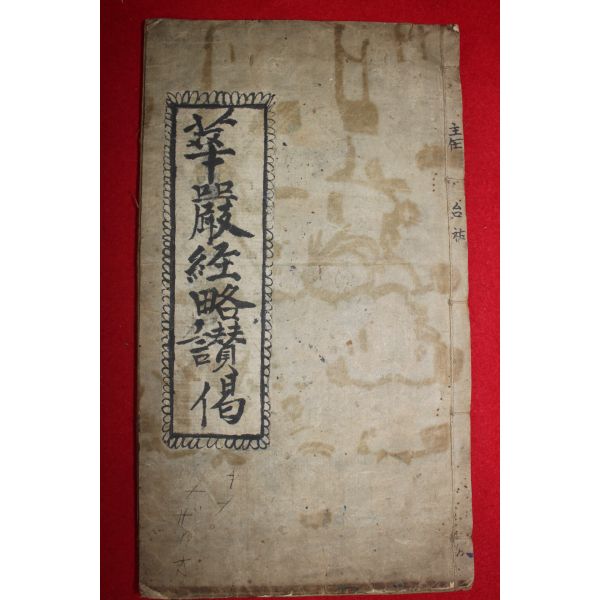 華嚴經略讚偈
主任 台祐